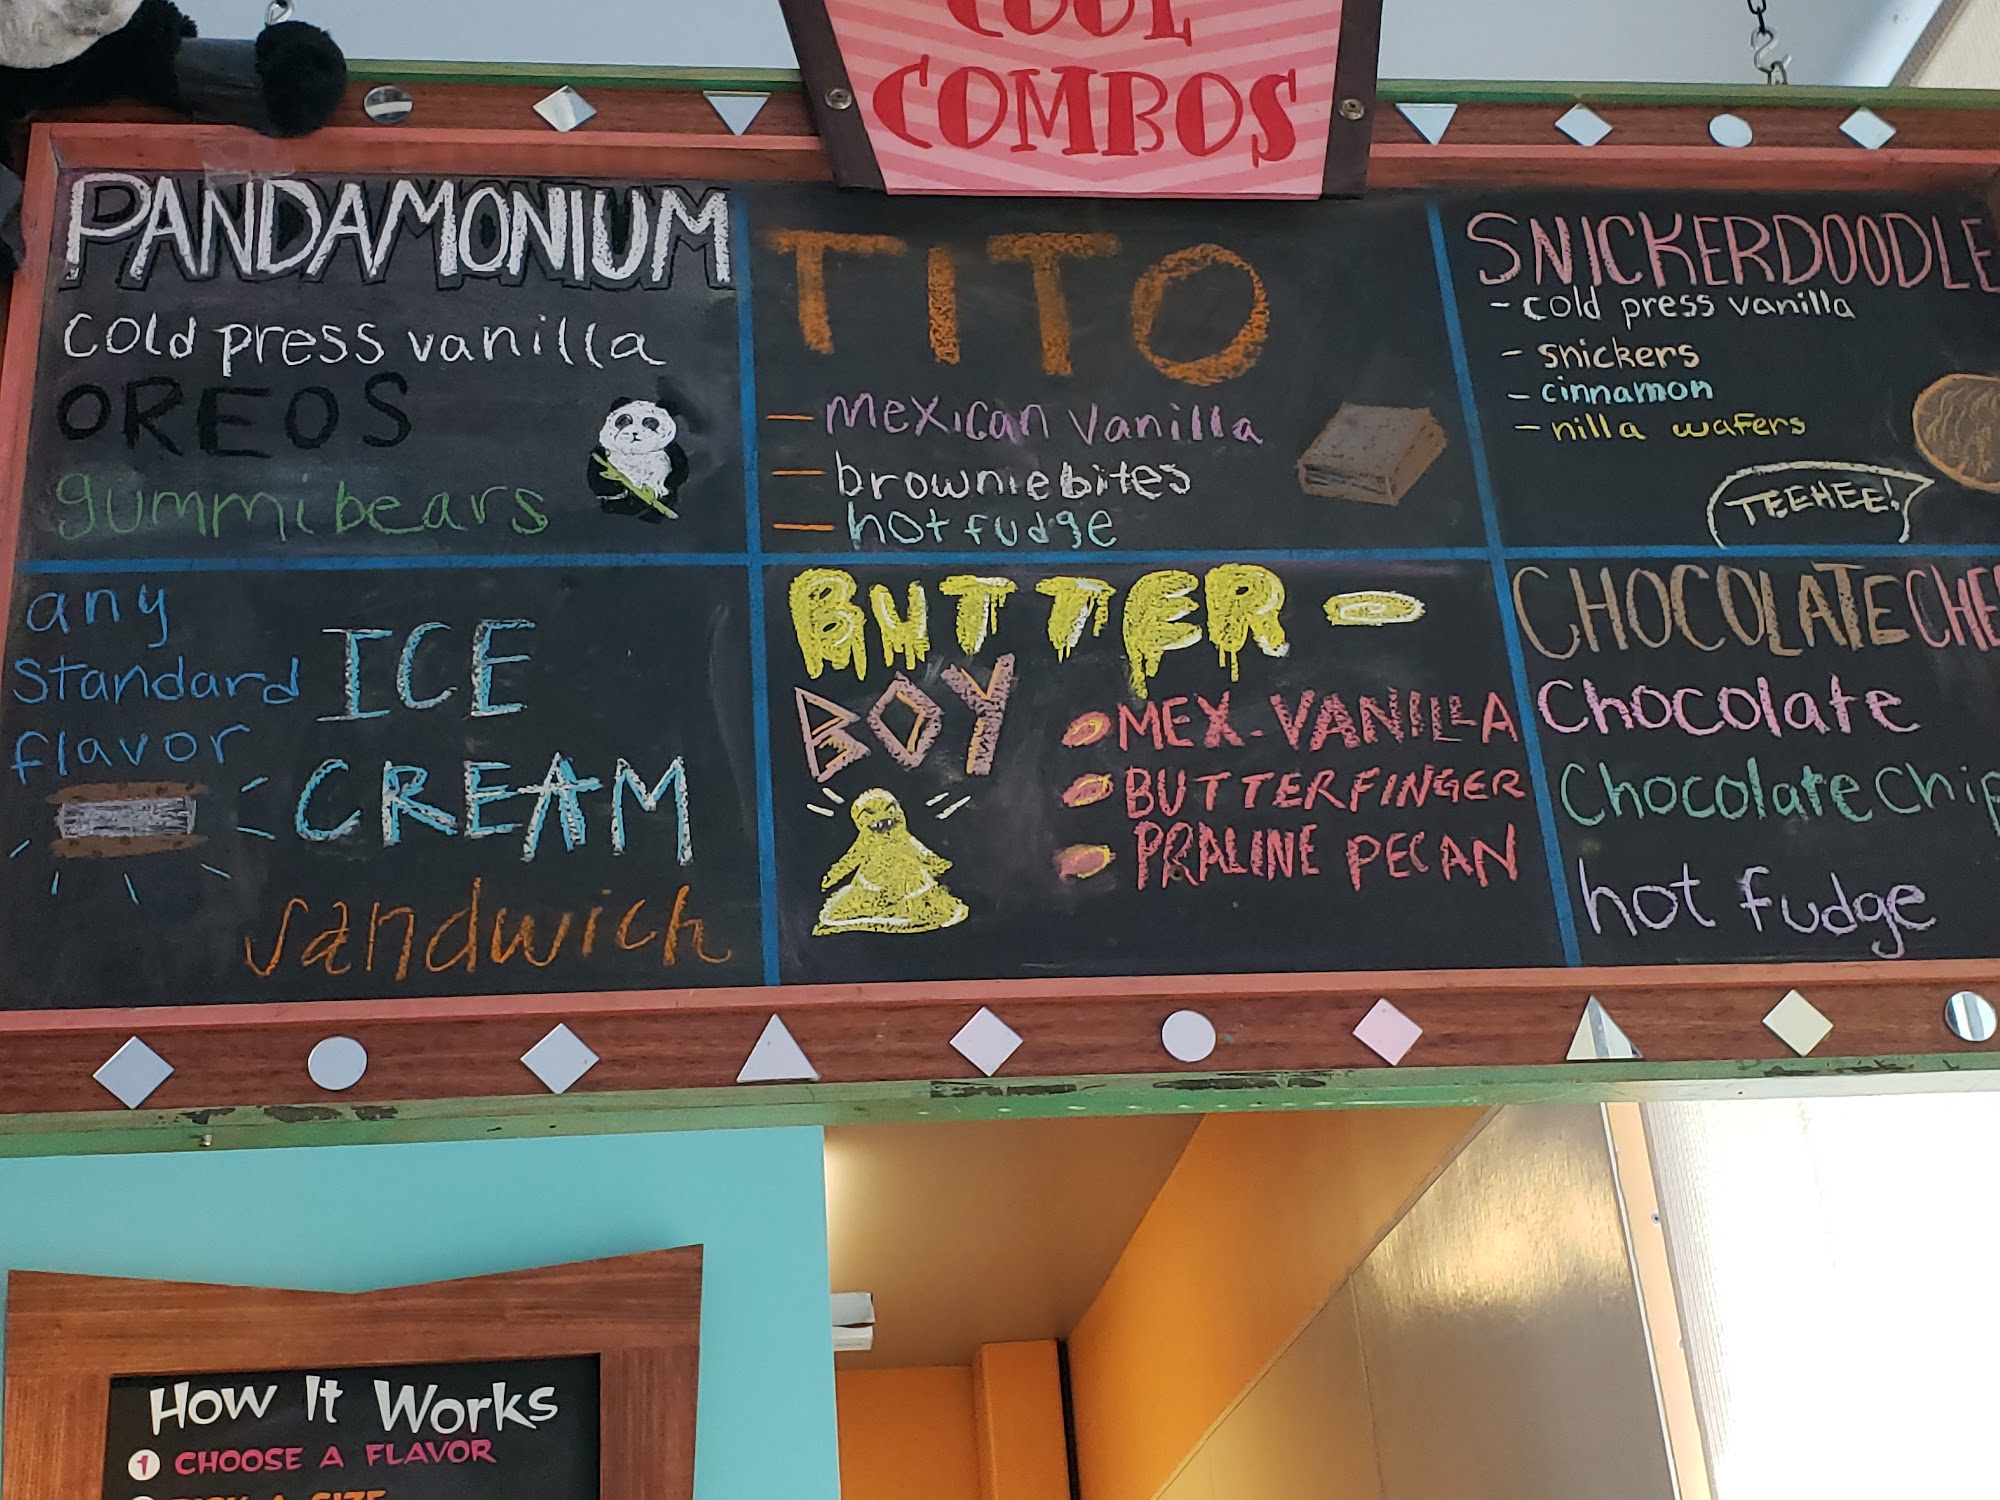 COOL
COMBOS
PANDAMONIUM
cold press vanilla
OREOS
gummi bears
TITO
- Mexican Vanilla
- brownie bites
- hot fudge
SNICKERDOODLE
- cold press vanilla
- snickers
- cinnamon
- nilla wafers
TEEHEE!
any
standard
flavor
ICE
CREAM
sandwich
BUTTER-
BOY
MEX. VANILLA
BUTTERFINGER
PRALINE PECAN
CHOCOLATE CHE
Chocolate
Chocolate Chip
hot fudge
How It Works
1 CHOOSE A FLAVOR
A SIZE